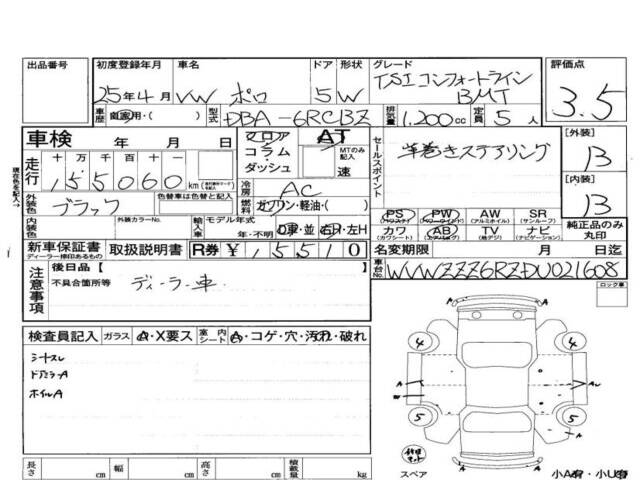 出品番号 初度登録年月 車名 ドア 形状 グレード 評価点
25年4月 VW ポロ 5 W TSIコンフォートライン
BMT 3.5
車歴 自家用・( ) 型式 DBA-6RCBZ 排気量 1,200cc 定員 5人
車検 年 月 日 フロア AT
コラム・ MTのみ記入
ダッシュ 速
セールスポイント 革巻きステアリング
[外装] B
[内装] B
現在色を記入→
走行 十 万 千 百 十 一
155060 km
冷房 AC
外装色 ブラック 色替車は色替と記入 燃料 ガソリン・軽油・( )
内装色 外装カラーNo. 輸入車 モデル年式 年・不明 D車・並 右H・左H
PS AW PW SR
(パワステ) (パワーウィンドウ) (アルミホイル) (サンルーフ)
カワ AB TV ナビ
(カワシート) (エアバック) (地デジ) (ナビゲーション)
純正品のみ丸印
新車保証書 取扱説明書 R券 ¥15510
ディーラー捺印あるもの
名変期限 月 日
車台No. WVWZZZ6RZDU021608
注意事項 後日品[ ]
不具合箇所等 ディーラー車
ロック車
検査員記入 ガラス A・X要ス 室内シート A・コゲ・穴・汚れ・破れ
シートスレ
ドアミラーA
ホイルA
4 4
A A
5 5
A
修理キット
スペア 小A有・小U有
長さ cm 幅 cm 高さ cm 積載量 kg